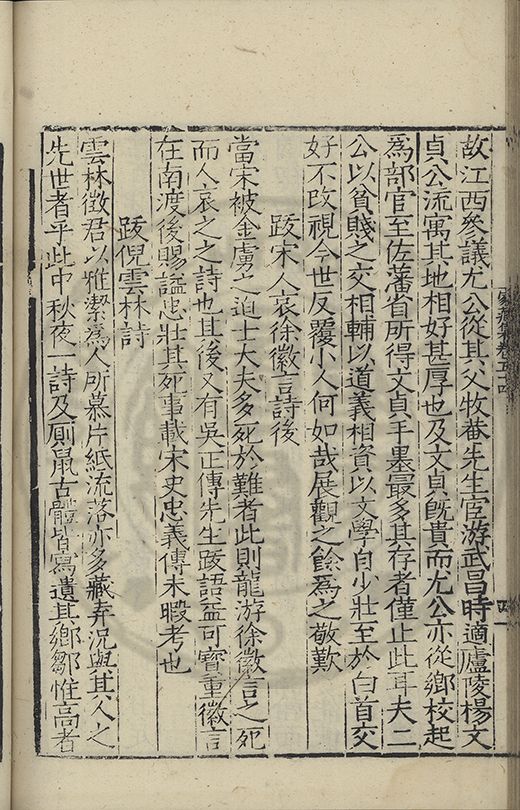 故江西參議尤公從其父牧菴先生宦游武昌時適廬陵楊文
貞公流寓其地相好甚厚也及文貞旣貴而尤公亦從鄉校起
爲部官至佐藩省所得文貞手墨最多其存者僅止此耳夫二
公以貧賤之交相輔以道義相資以文學自少壯至於白首交
好不改視今世反覆小人何如哉展觀之餘爲之敬歎
跋宋人哀徐徽言詩後
當宋被金虜之迫士大夫多死於難者此則龍游徐徽言之死
而人哀之之詩也且後又有吳正傳先生跋語益可寶重徽言
在南渡後賜謚忠壯其死事載宋史忠義傳未暇考也
跋倪雲林詩
雲林徵君以雅潔爲人所慕片紙流落亦多藏弆况與其人之
先世者乎此中秋夜一詩及厕鼠古體皆寫遺其鄉鄒惟高者